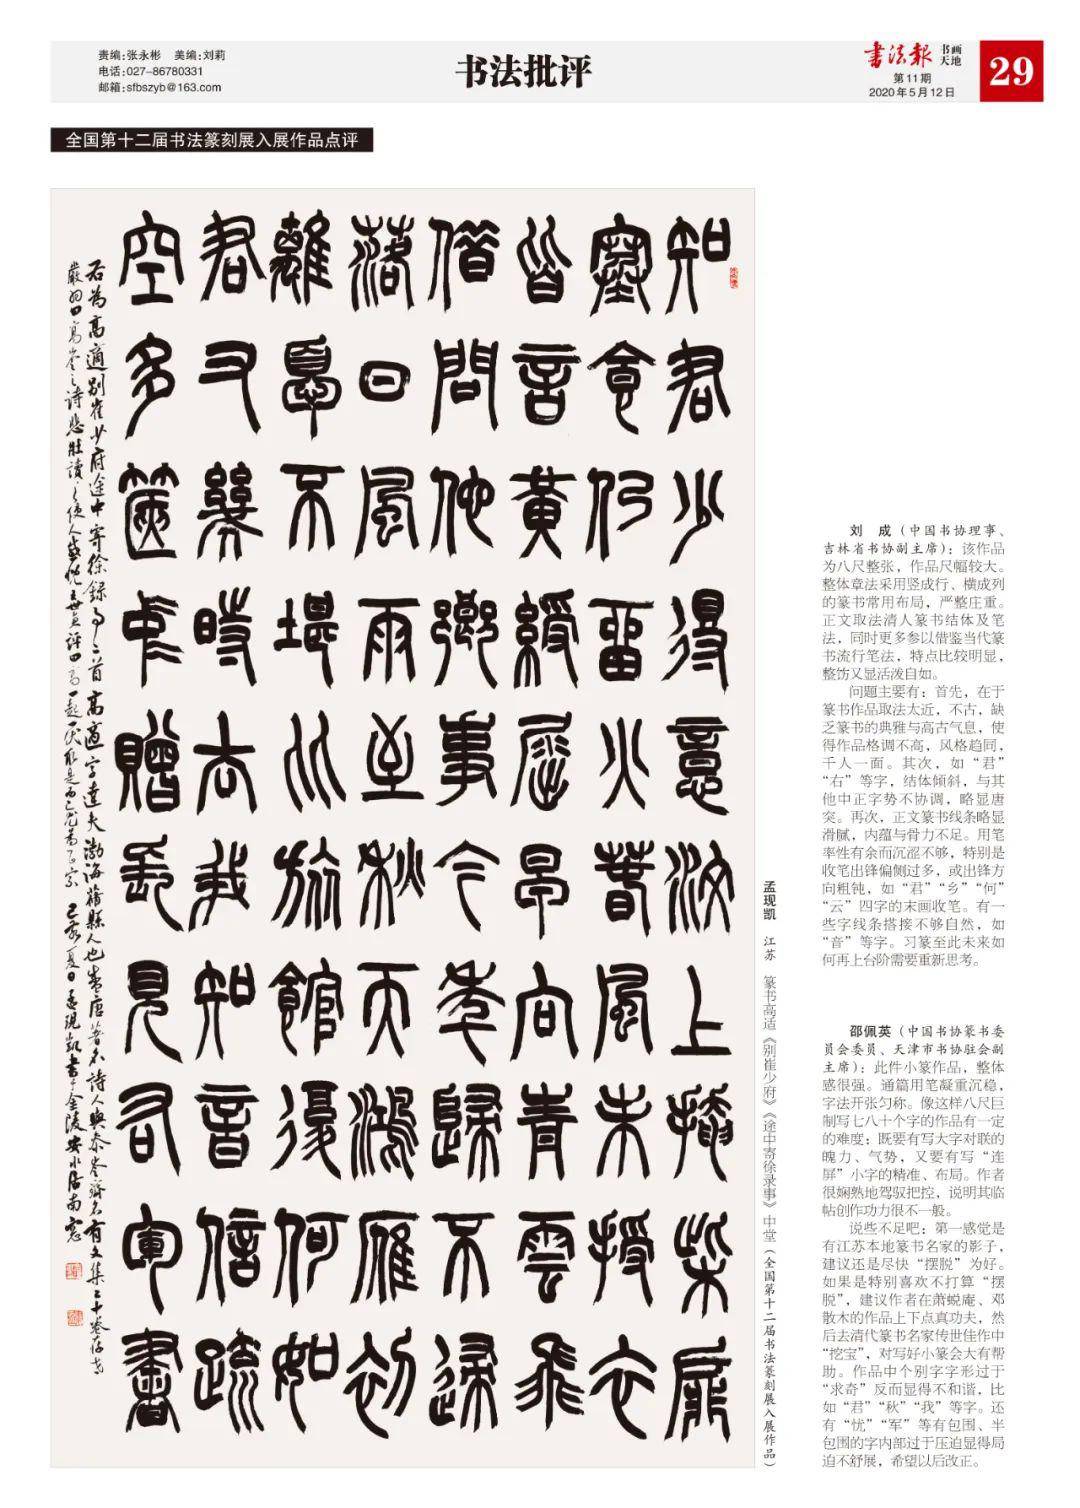 责编:张永彬 美编:刘莉
电话:027-86780331
邮箱:sfbszyb@163.com
书法批评
書法報 书画天地
第11期
2020年5月12日
29
全国第十二届书法篆刻展入展作品点评
知君少得意汶上掩柴扉
寒食仍留火春風未授衣
皆言黃綬屈早向青雲飛
借問他鄉事今年歸不歸
落日風雨至秋天鴻雁初
離憂不堪比旅館復何如
君又幾時去我知音信疏
空多篋中贈長見右軍書
右為高適別崔少府途中寄徐録事二首 高適字達夫渤海蓨縣人也盛唐著名詩人與參岑齊名有文集二十卷存世
嚴羽曰高岑之詩悲壯讀之使人感慨王世貞評曰高一起一伏取是而已尤為正宗 己亥夏日孟現凱書於金陵安水居南窗
孟现凯 江苏 篆书高适《别崔少府》《途中寄徐录事》中堂(全国第十二届书法篆刻展入展作品)
刘 成(中国书协理事、
吉林省书协副主席):该作品
为八尺整张,作品尺幅较大。
整体章法采用竖成行、横成列
的篆书常用布局,严整庄重。
正文取法清人篆书结体及笔
法,同时更多参以借鉴当代篆
书流行笔法,特点比较明显,
整饬又显活泼自如。
问题主要有:首先,在于
篆书作品取法太近,不古,缺
乏篆书的典雅与高古气息,使
得作品格调不高,风格趋同,
千人一面。其次,如“君”
“右”等字,结体倾斜,与其
他中正字势不协调,略显唐
突。再次,正文篆书线条略显
滑腻,内蕴与骨力不足。用笔
率性有余而沉涩不够,特别是
收笔出锋偏侧过多,或出锋方
向粗钝,如“君”“乡”“何”
“云”四字的末画收笔。有一
些字线条搭接不够自然,如
“音”等字。习篆至此未来如
何再上台阶需要重新思考。
邵佩英(中国书协篆书委
员会委员、天津市书协驻会副
主席):此件小篆作品,整体
感很强。通篇用笔凝重沉稳,
字法开张匀称。像这样八尺巨
制写七八十个字的作品有一定
的难度:既要有写大字对联的
魄力、气势,又要有写“连
屏”小字的精准、布局。作者
很娴熟地驾驭把控,说明其临
帖创作功力很不一般。
说些不足吧:第一感觉是
有江苏本地篆书名家的影子,
建议还是尽快“摆脱”为好。
如果是特别喜欢不打算“摆
脱”,建议作者在萧蜕庵、邓
散木的作品上下点真功夫,然
后去清代篆书名家传世佳作中
“挖宝”,对写好小篆会大有帮
助。作品中个别字字形过于
“求奇”反而显得不和谐,比
如“君”“秋”“我”等字。还
有“忧”“军”等有包围、半
包围的字内部过于压迫显得局
迫不舒展,希望以后改正。